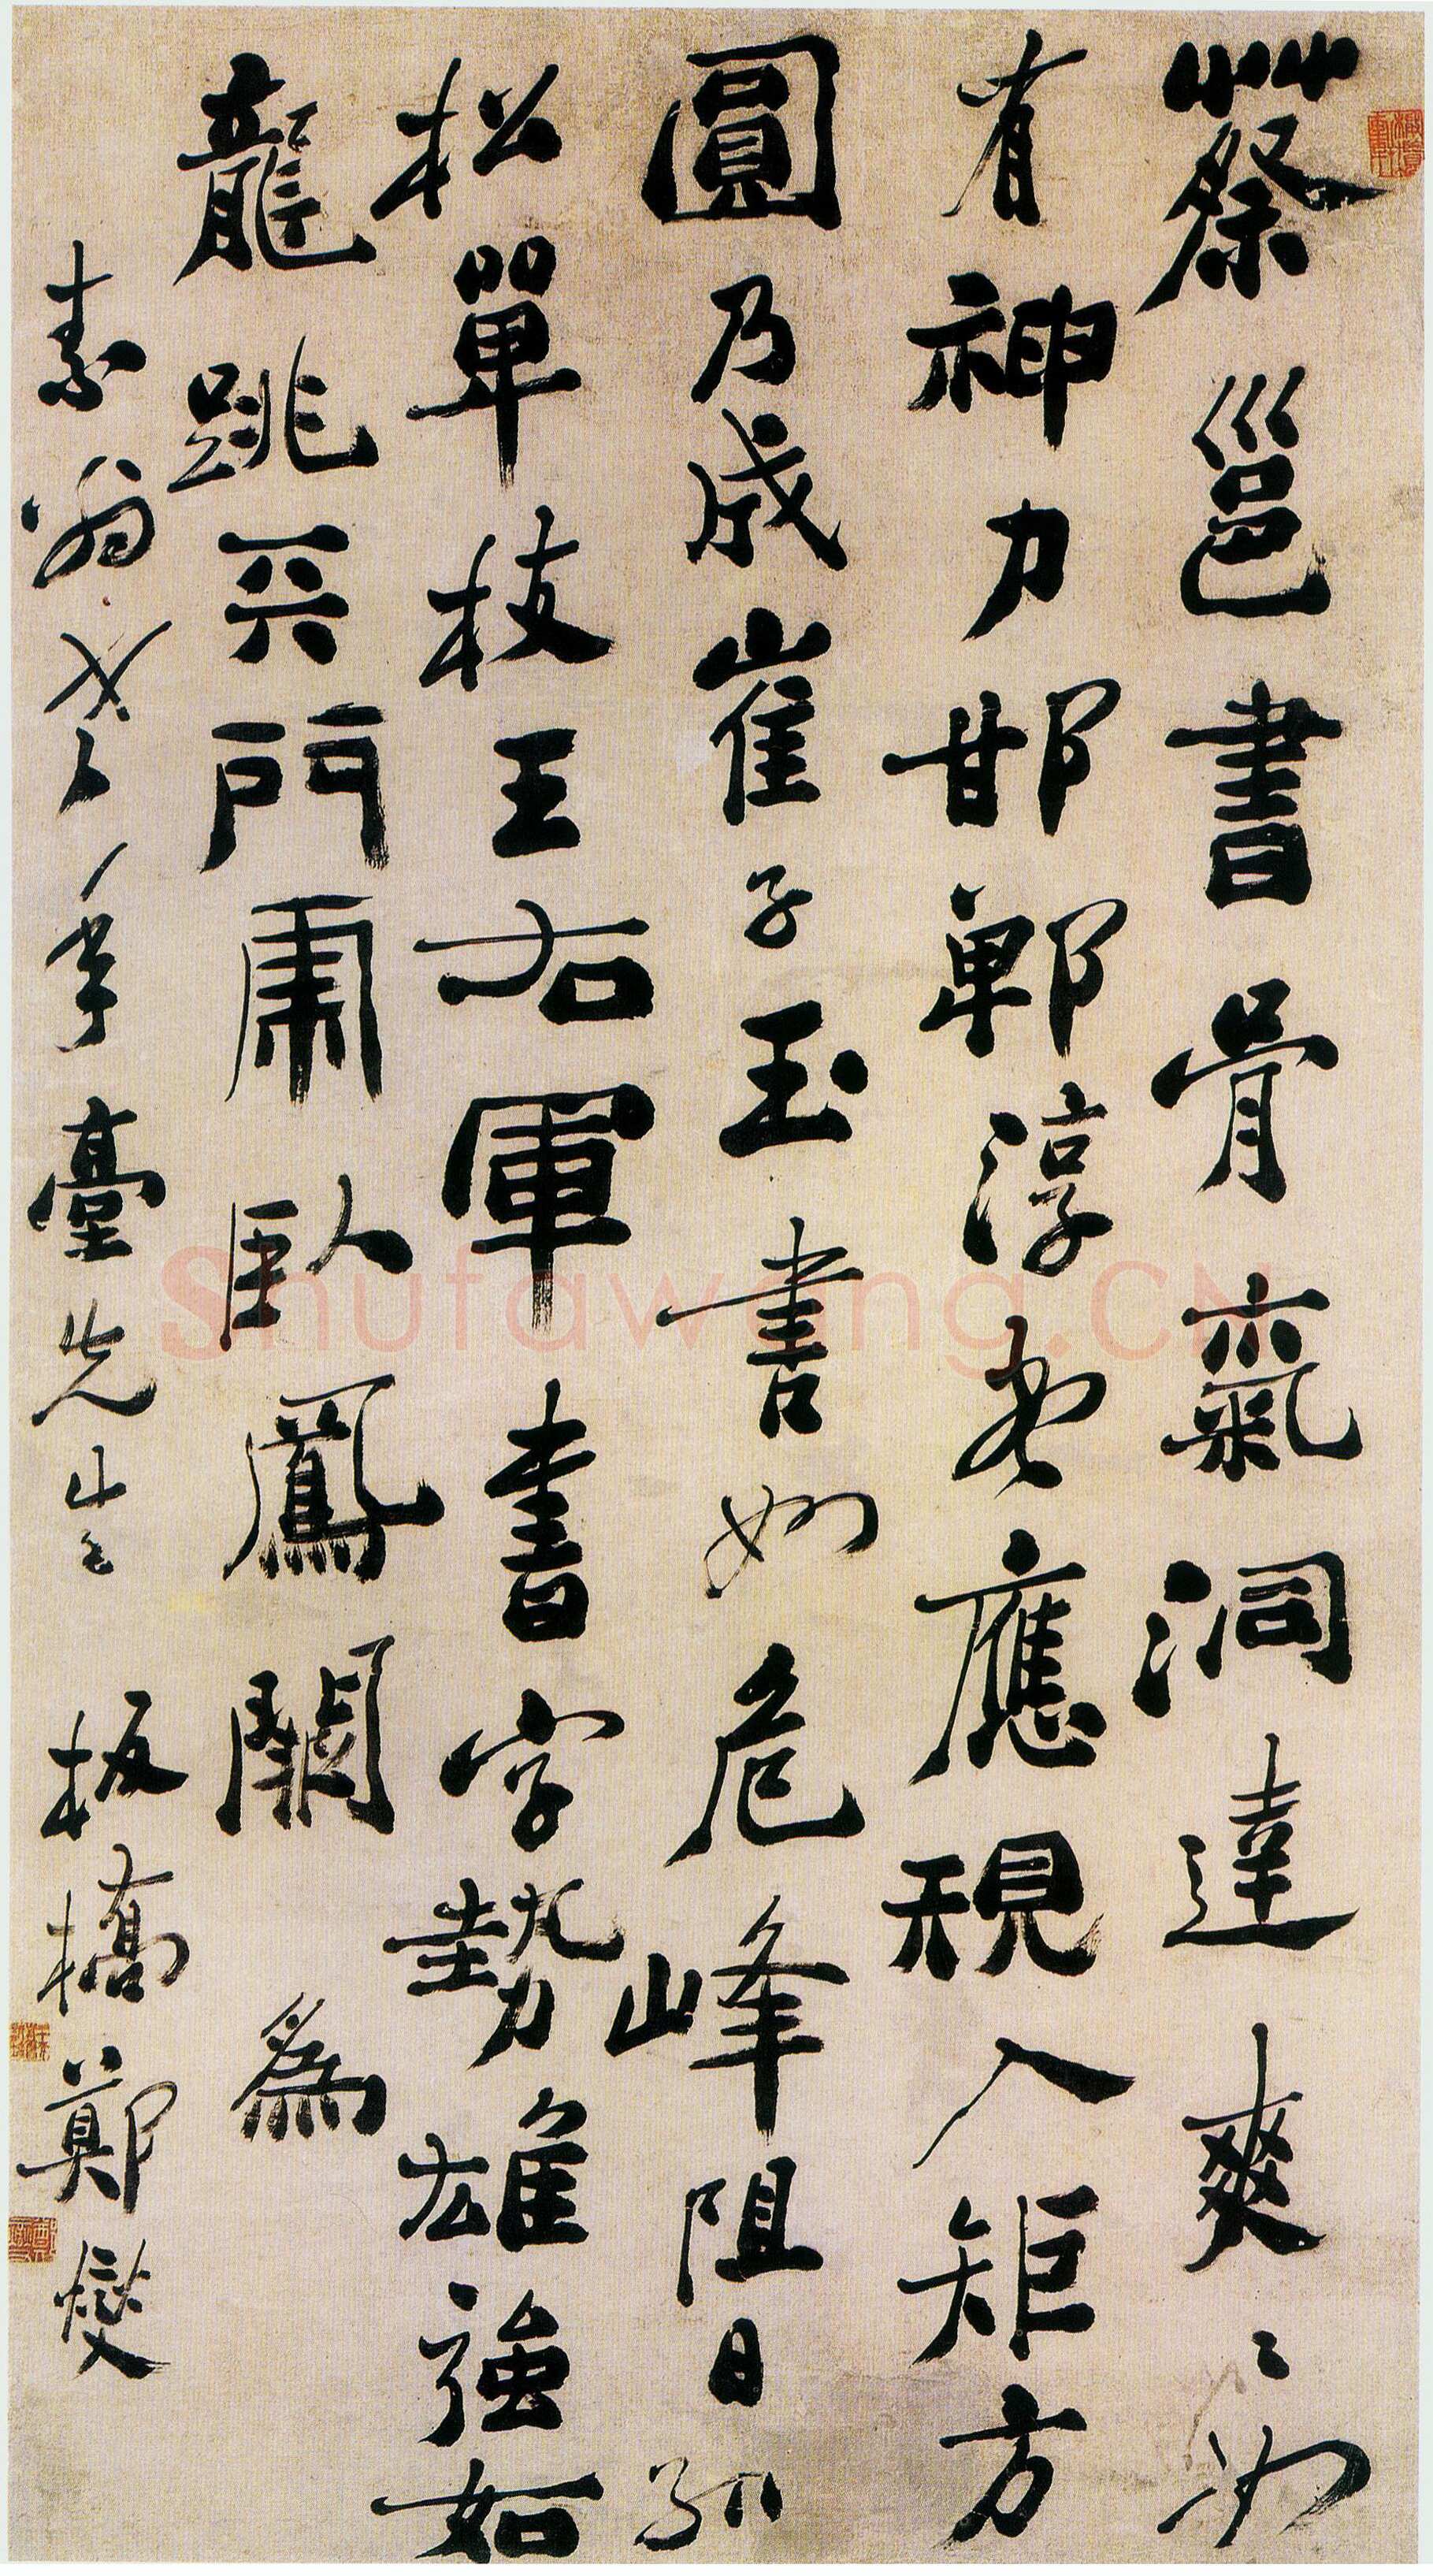 蔡邕書骨氣洞達爽〻如
有神力邯鄲淳書應規入矩方
圓乃成崔子玉書如危峰阻日孤
松單枝王右軍書字勢雄強如
龍跳天門虎臥鳳闕 為
素翁老年學臺先生 板橋鄭燮
Shufawang.CN